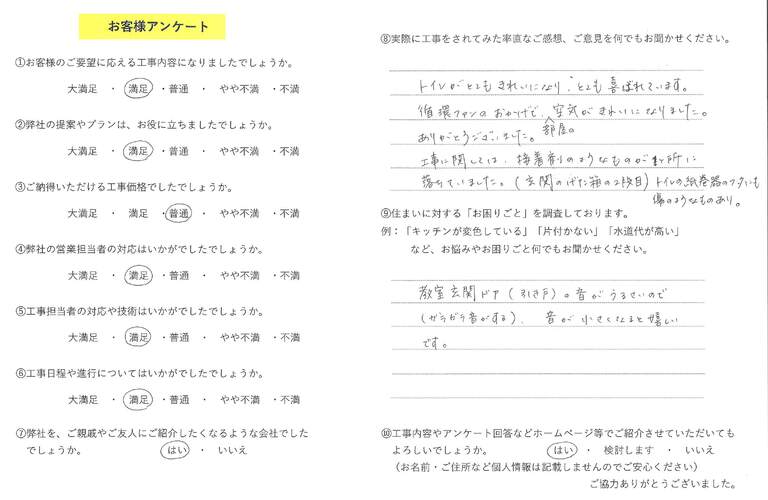 お客様アンケート
①お客様のご要望に応える工事内容になりましたでしょうか。
大満足 ・ 満足 ・普通 ・ やや不満 ・不満
②弊社の提案やプランは、お役に立ちましたでしょうか。
大満足 ・ 満足 ・普通 ・ やや不満 ・不満
③ご納得いただける工事価格でしたでしょうか。
大満足 ・ 満足 ・普通 ・ やや不満 ・不満
④弊社の営業担当者の対応はいかがでしたでしょうか。
大満足 ・ 満足 ・普通 ・ やや不満 ・不満
⑤工事担当者の対応や技術はいかがでしたでしょうか。
大満足 ・ 満足 ・普通 ・ やや不満 ・不満
⑥工事日程や進行についてはいかがでしたでしょうか。
大満足 ・ 満足 ・普通 ・ やや不満 ・不満
⑦弊社を、ご親戚やご友人にご紹介したくなるような会社でした
でしょうか。 はい ・ いいえ
⑧実際に工事をされてみた率直なご感想、ご意見を何でもお聞かせください。
トイレがとてもきれいになり、とても喜ばれています。
循環ファンのおかげで、空気がきれいになりました。
部屋の
ありがとうございました。
工事に関しては、接着剤のようなものが ヶ所に
落ちていました。(玄関のげた箱の2段目)トイレの紙巻器のフタにも
傷のようなものあり。
⑨住まいに対する「お困りごと」を調査しております。
例：「キッチンが変色している」「片付かない」「水道代が高い」
など、お悩みやお困りごと何でもお聞かせください。
教室玄関ドア(引き戸)の音がうるさいので
(ガラガラ音がする)、音が小さくなると嬉しい
です。
⑩工事内容やアンケート回答などホームページ等でご紹介させていただいても
よろしいでしょうか。 はい ・ 検討します ・ いいえ
（お名前・ご住所など個人情報は記載しませんのでご安心ください）
ご協力ありがとうございました。